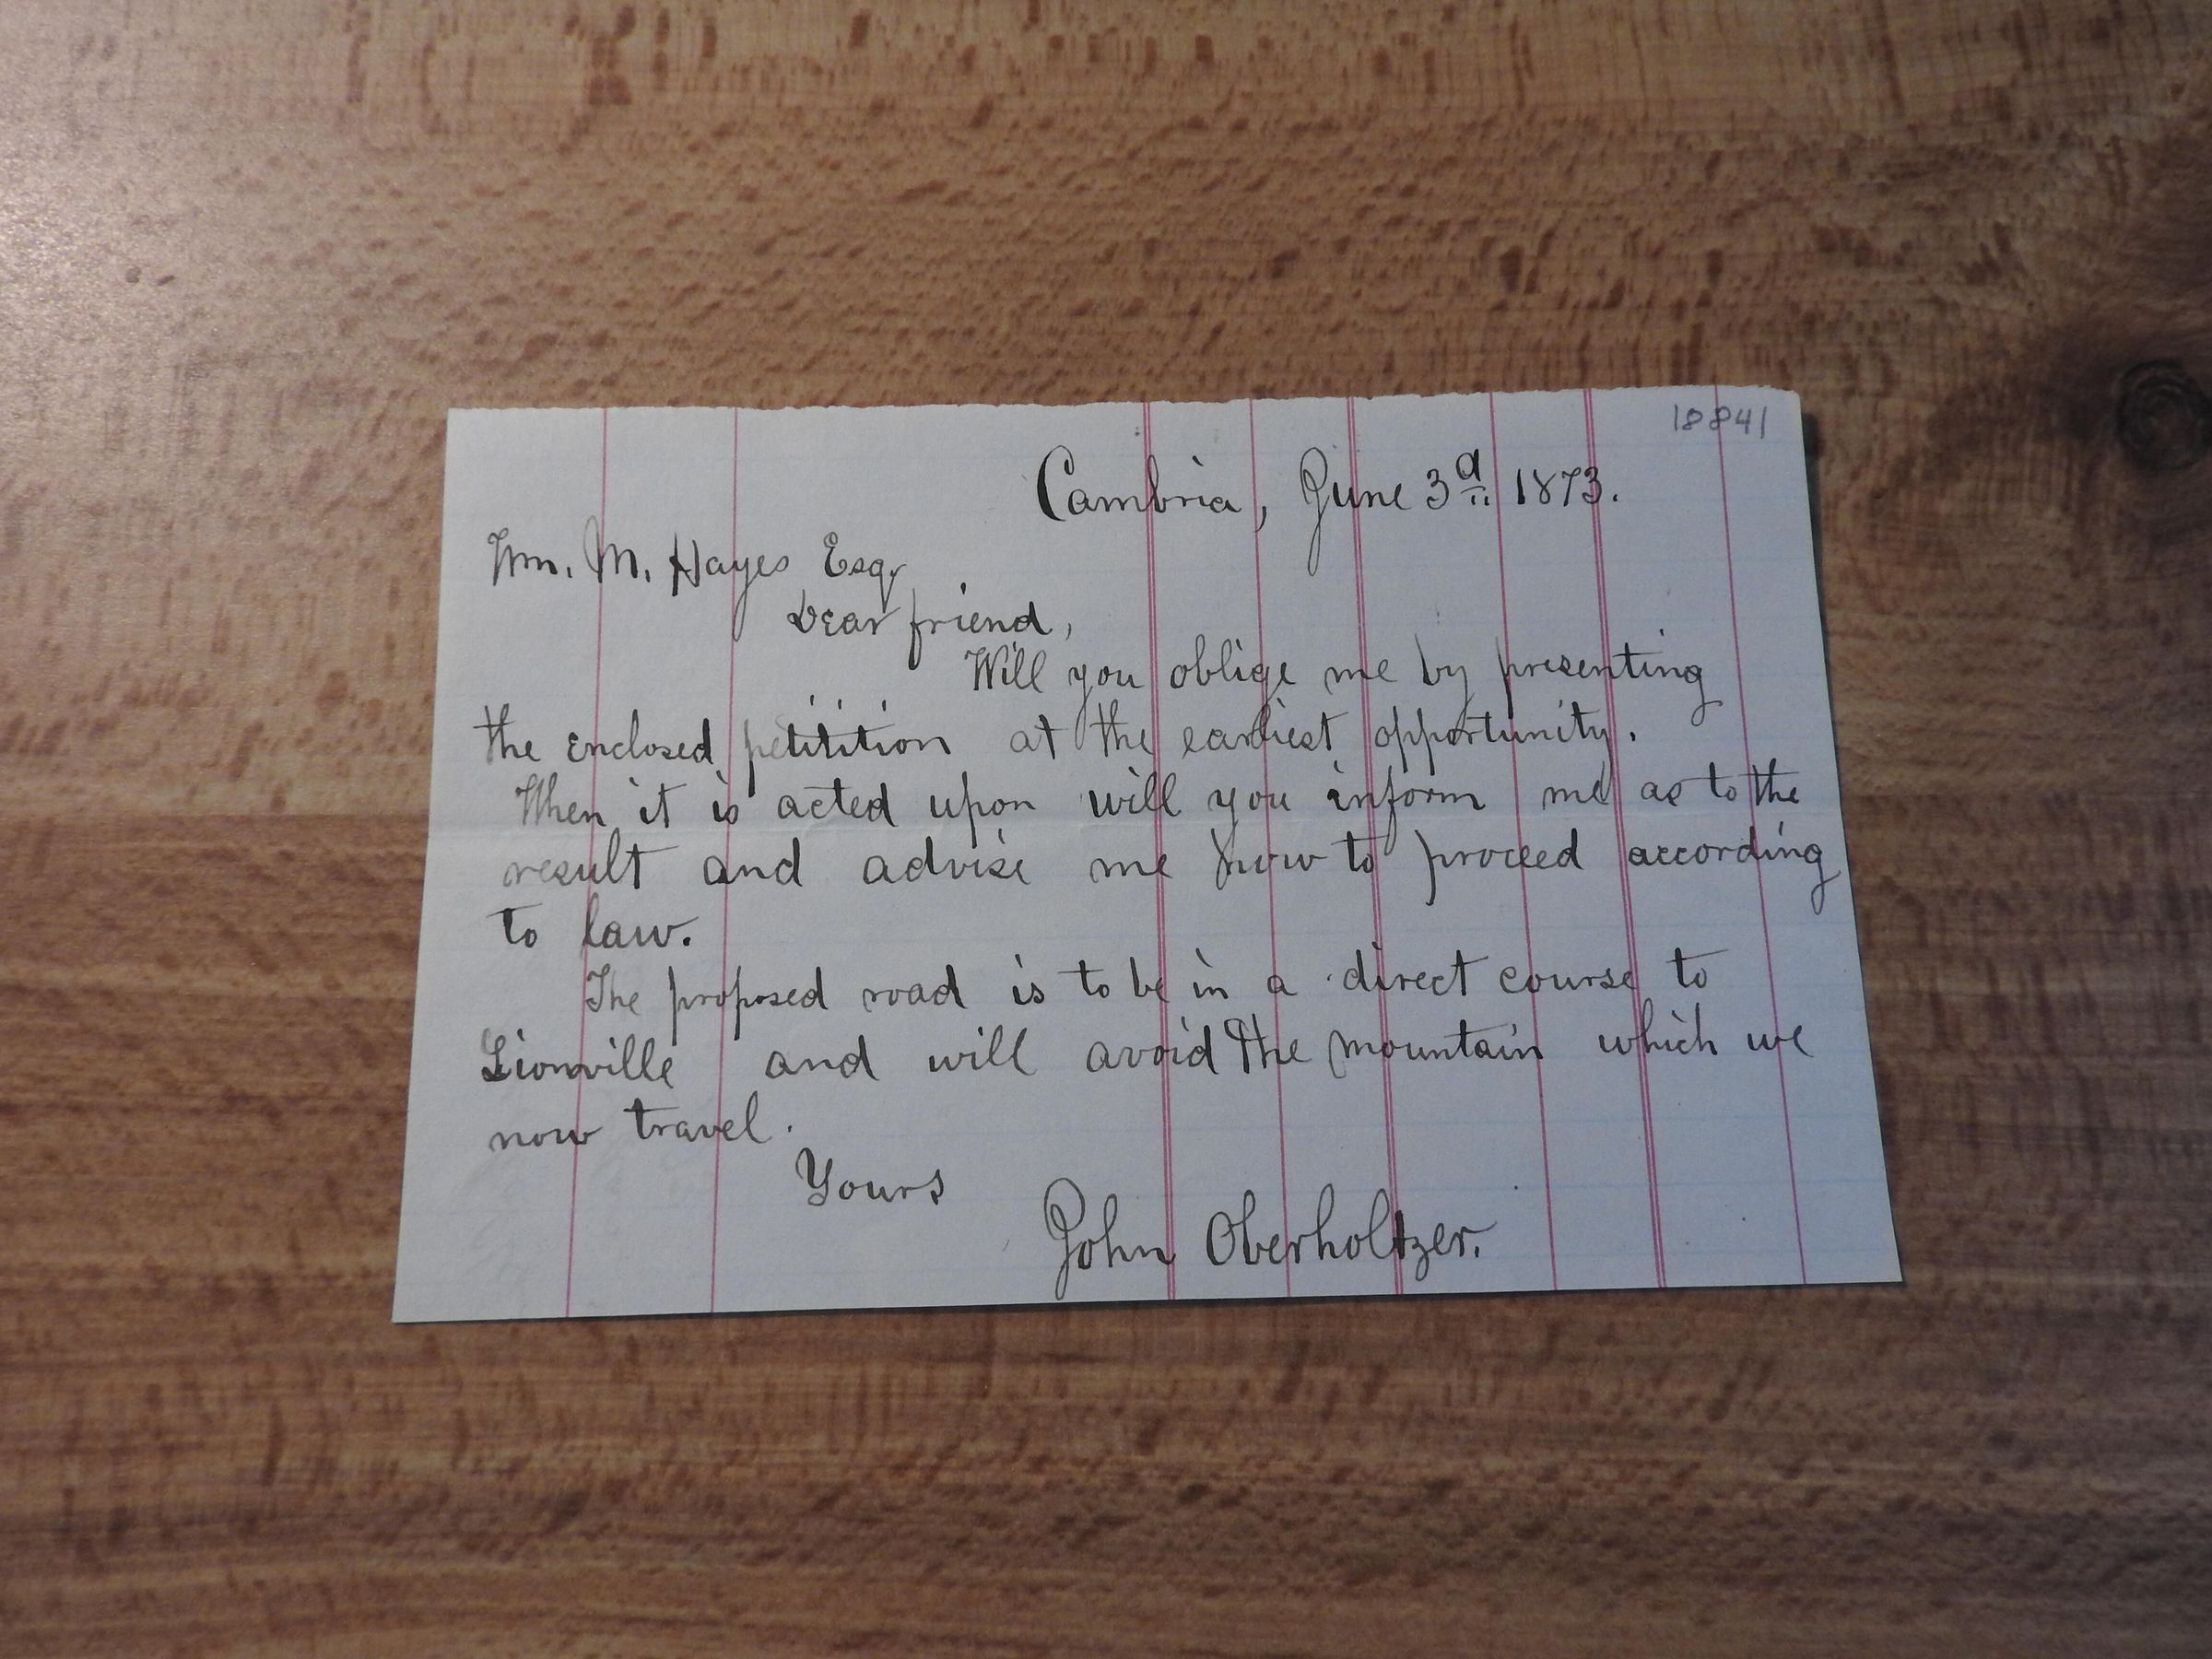 18841
Cambria, June 3d 1873.
Wm. M. Hayes Esq.
Dear friend,
Will you oblige me by presenting
the enclosed petitition at the earliest opportunity.
When it is acted upon will you inform me as to the
result and advise me how to proceed according
to law.
The proposed road is to be in a direct course to
Lionville and will avoid the mountain which we
now travel.
Yours
John Oberholtzer.